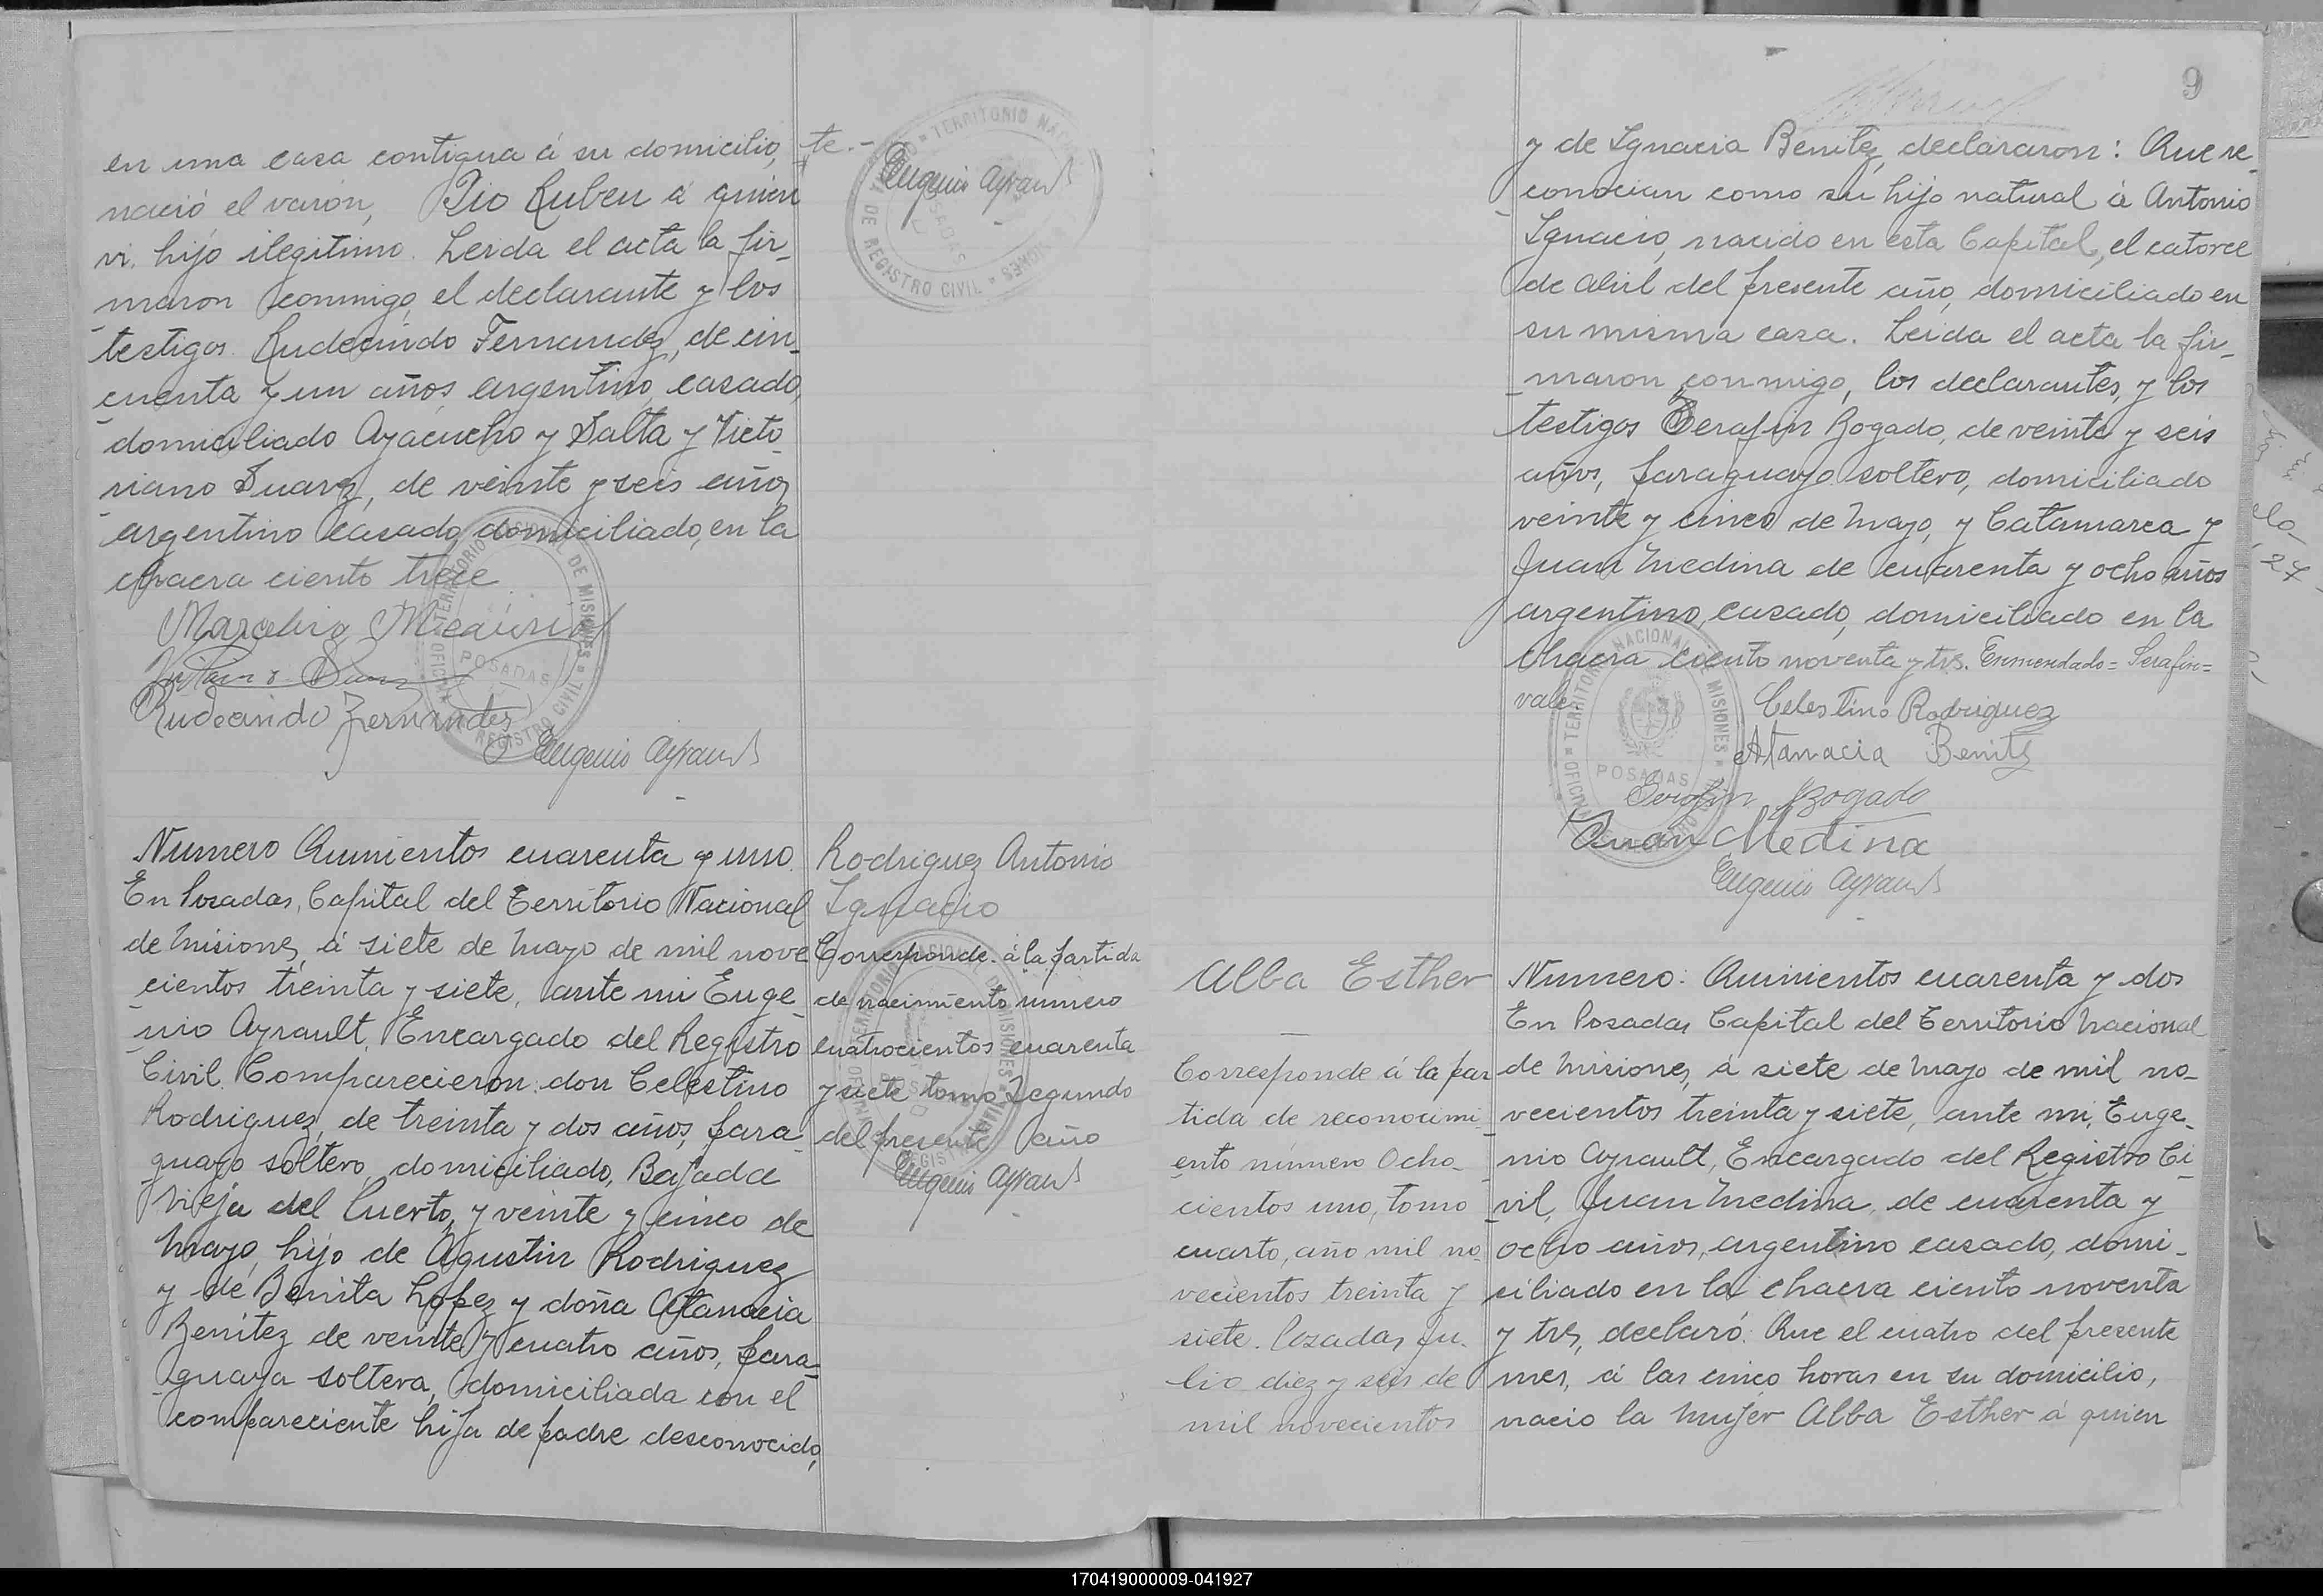 en una casa contigua á su domicilio,
nació el varón, Pio Ruben á quien
vi, hijo ilegitimo. Leida el acta la fir-
maron conmigo, el declarante y los
testigos Rudecindo Fernandez, de cin-
cuenta y un años argentino, casado,
domiciliado Ayacucho y Salta y Victo-
riano Suarez, de veinte y seis años
argentino casado, domiciliado, en la
chacra ciento trece.
Marcelino
Suarez
Rudecindo Fernandez
Eugenio Ayrault
te.-
Eugenio Ayrault
TERRITORIO NACIONAL DE MISIONES
OFICINA DE REGISTRO CIVIL
POSADAS
Numero Quinientos cuarenta y uno.
En Posadas, Capital del Territorio Nacional
de Misiones, á siete de Mayo de mil nove
cientos treinta y siete, ante mi Euge-
nio Ayrault, Encargado del Registro
Civil. Comparecieron: don Celestino
Rodriguez, de treinta y dos años, para-
guayo soltero, domiciliado, Bajada
Vieja del Puerto, y veinte y cinco de
Mayo, hijo de Agustin Rodriguez
y de Benita Lopez y doña Atanacia
Benitez de veinte y cuatro años, para-
guaya soltera, domiciliada con el
compareciente hija de padre desconocido,
Rodriguez Antonio
Ignacio
Corresponde á la partida
de nacimiento numero
cuatrocientos cuarenta
y siete tomo Segundo
del presente año
Eugenio Ayrault
9
y de Ignacia Benitez, declararon: Que re-
conocian como su hijo natural á Antonio
Ignacio, nacido en esta Capital, el catorce
de Abril del presente año, domiciliado en
su misma casa. Leida el acta la fir-
maron conmigo, los declarantes, y los
testigos Serafin Bogado, de veinte y seis
años, paraguayo soltero, domiciliado
veinte y cinco de Mayo, y Catamarca y
Juan Medina de cuarenta y ocho años
argentino, casado, domiciliado en la
chacra ciento noventa y tres. Enmendado= Serafin=
vale
Celestino Rodriguez
Atanacia Benitez
Serafin Bogado
Juan Medina
Eugenio Ayrault
Alba Esther
Corresponde á la par
tida de reconocimi-
ento número Ocho-
cientos uno, tomo
cuarto, año mil no-
vecientos treinta y
siete. Posadas Ju-
lio diez y seis de
mil novecientos
Numero: Quinientos cuarenta y dos
En Posadas Capital del Territorio Nacional
de Misiones, á siete de Mayo de mil no-
vecientos treinta y siete, ante mi, Euge-
nio Ayrault, Encargado del Registro Ci-
vil, Juan Medina, de cuarenta y
ocho años, argentino casado, domi-
ciliado en la chacra ciento noventa
y tres, declaró: Que el cuatro del presente
mes, á las cinco horas en su domicilio,
nacio la mujer Alba Esther á quien
170419000009-041927